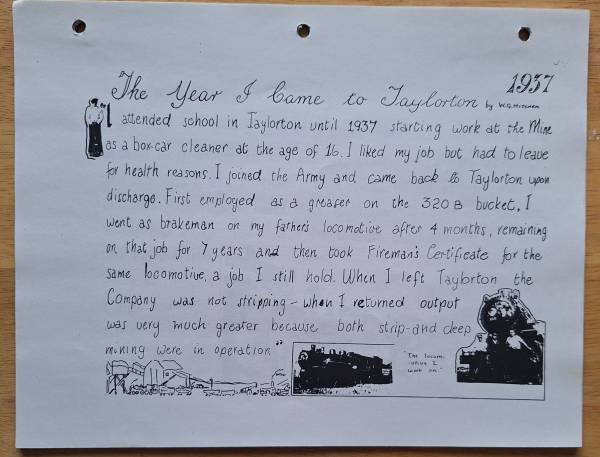 1937
The Year I Came to Taylorton by W.G. Mitchen
I attended school in Taylorton until 1937 starting work at the Mine
as a box-car cleaner at the age of 16. I liked my job but had to leave
for health reasons. I joined the Army and came back to Taylorton upon
discharge. First employed as a greaser on the 320 B bucket, I
went as brakeman on my father's locomotive after 4 months, remaining
on that job for 7 years and then took Fireman's Certificate for the
same locomotive, a job I still hold. When I left Taylorton the
Company was not stripping - when I returned output
was very much greater because both strip-and deep
mining were in operation"
"The locom-
otive I
work on."